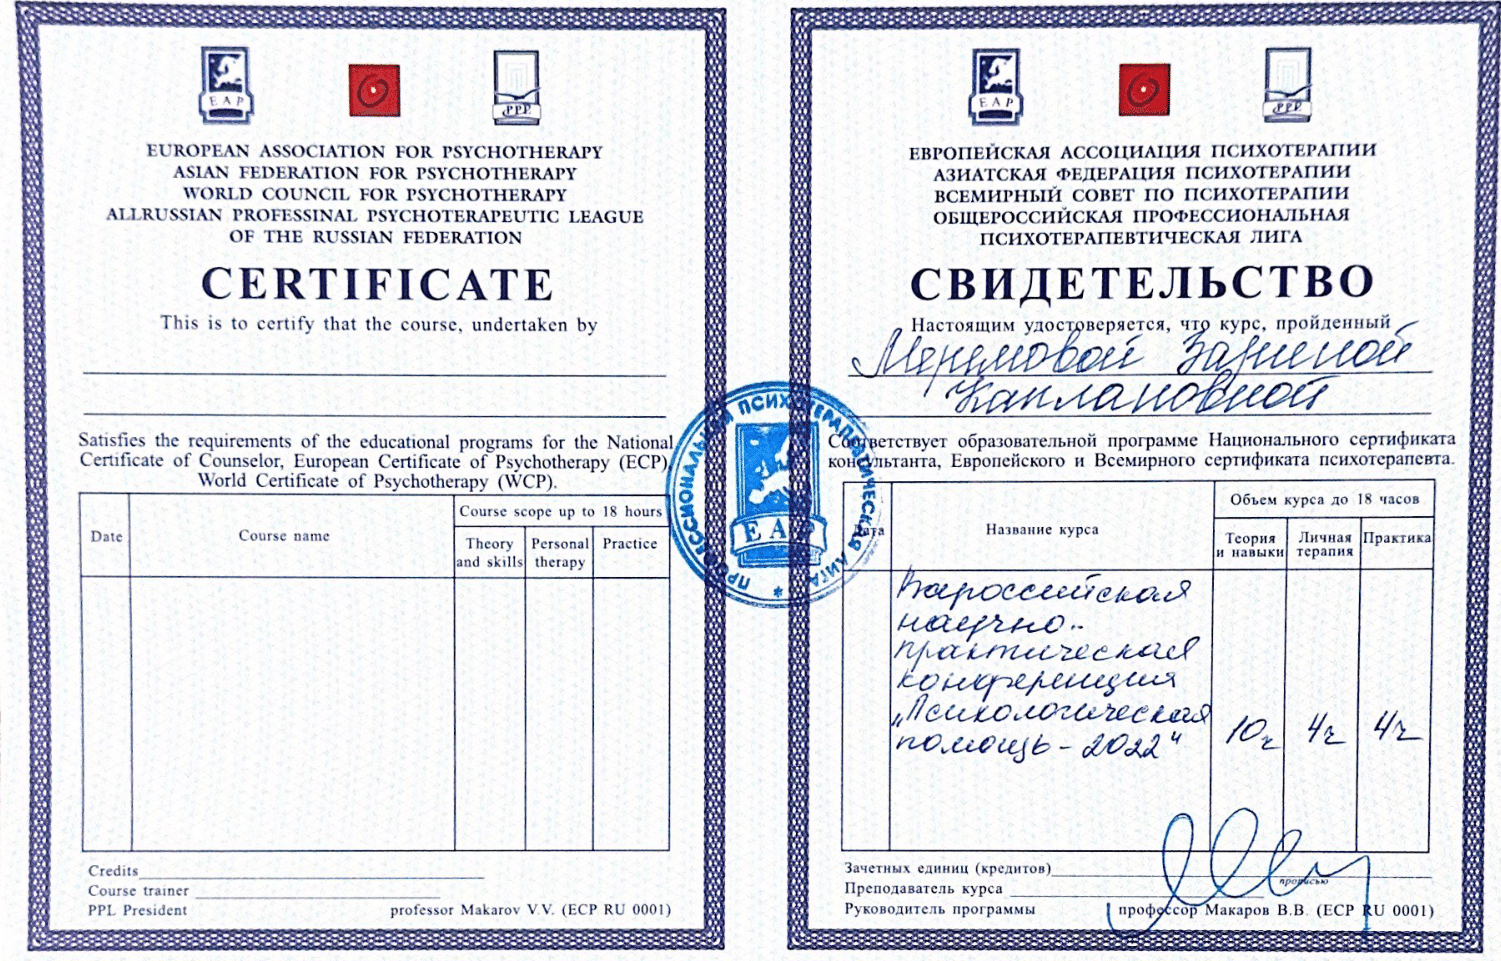 EAP
PPL
EUROPEAN ASSOCIATION FOR PSYCHOTHERAPY
ASIAN FEDERATION FOR PSYCHOTHERAPY
WORLD COUNCIL FOR PSYCHOTHERAPY
ALLRUSSIAN PROFESSINAL PSYCHOTERAPEUTIC LEAGUE
OF THE RUSSIAN FEDERATION
CERTIFICATE
This is to certify that the course, undertaken by
Satisfies the requirements of the educational programs for the National
Certificate of Counselor, European Certificate of Psychotherapy (ECP),
World Certificate of Psychotherapy (WCP).
Date
Course name
Course scope up to 18 hours
Theory
and skills
Personal
therapy
Practice
Credits
Course trainer
PPL President professor Makarov V.V. (ECP RU 0001)
ПРОФЕССИОНАЛЬНАЯ ПСИХОТЕРАПЕВТИЧЕСКАЯ ЛИГА
EAP
EAP
ЕВРОПЕЙСКАЯ АССОЦИАЦИЯ ПСИХОТЕРАПИИ
АЗИАТСКАЯ ФЕДЕРАЦИЯ ПСИХОТЕРАПИИ
ВСЕМИРНЫЙ СОВЕТ ПО ПСИХОТЕРАПИИ
ОБЩЕРОССИЙСКАЯ ПРОФЕССИОНАЛЬНАЯ
ПСИХОТЕРАПЕВТИЧЕСКАЯ ЛИГА
СВИДЕТЕЛЬСТВО
Настоящим удостоверяется, что курс, пройденный
Зариной
Каплановной
Соответствует образовательной программе Национального сертификата
консультанта, Европейского и Всемирного сертификата психотерапевта.
Дата
Название курса
Объем курса до 18 часов
Теория
и навыки
Личная
терапия
Практика
Всероссийская
научно-
практическая
конференция
„Психологическая
помощь - 2022"
10ч 4ч 4ч
Зачетных единиц (кредитов)
прописью
Преподаватель курса
Руководитель программы профессор Макаров В.В. (ECP RU 0001)